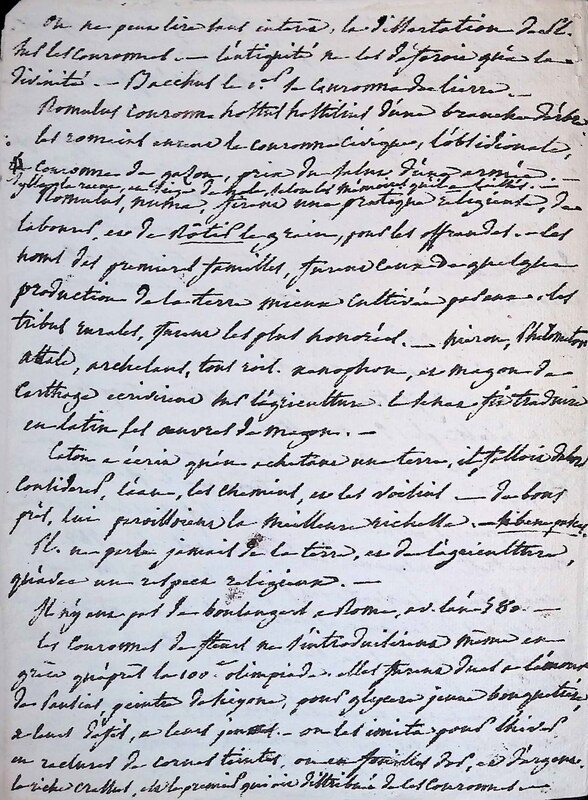 On ne peut lire sans interest, la dissertation de Pl.
sur les couronnes. — l'antiquité ne les déferoit qu'à la
divinité. — Bacchus le 1.er se couronna de lierre. —
Romulus couronna hostus hostilius d'une branche d'arbre
les romains eurent la couronne civique, l'obsidionale,
couronne de gazon, prix du salut d'une armée. —
Sylla selon les mémoires qu'il a laissés. —
Romulus, numa, firent une pratique religieuse, du
labour et de rôtir le grain, pour les offrandes. — les
noms des premieres familles, furent ceux de quelque
production de la terre mieux cultivée par eux. les
tribus rurales, furent les plus honorées. — hieron, Philometor
attale, archelaus, tous rois. xenophon, et magon de
Carthage ecrivirent sur l'agriculture. le senat fit traduire
en latin les œuvres de magon. —
Caton a écrit qu'en achetant une terre, il falloit d'abord
considerer, l'eau, les chemins, et les voisins. — de bons
prés, lui paroissoient la meilleure richesse. — si bene pascas.
Pl. ne parle jamais de la terre, et de l'agriculture,
qu'avec un respect religieux. —
Il n'y eut pas de boulangers a Rome, av. l'an 580. —
les couronnes de fleurs ne s'introduisirent même en
grèce qu'après la 100.e olimpiade. elles furent dues a l'amour
de Pausias, peintre de sicyone, pour glycere jeune bouquetiere
a leurs défis, a leurs jeux. — on les imita pour l'hiver
en raclures de cornes teintes, ou en feuilles d'or, et d'argent.
le riche crassus, est le premier qui ait distribué de ces couronnes —